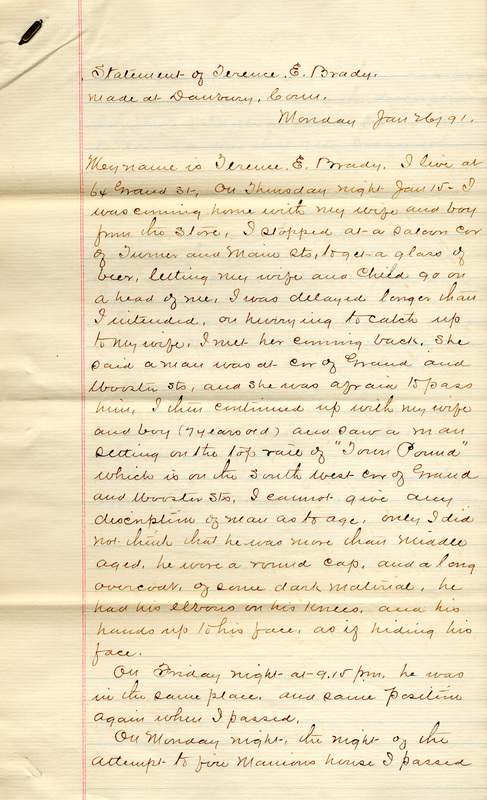 Statement of Terence. E. Brady.
made at Danbury, Conn.
Monday Jan 26/91.
My name is Terence. E. Brady. I live at
64 Grand St, On Thursday night Jan 15- I
was coming home with my wife and boy
from the store, I stopped at a saloon cor
of Turner and Main Sts, to get a glass of
beer, letting my wife and child go on
a head of me, I was delayed longer than
I intended, on hurrying to catch up
to my wife, I met her coming back, she
said a man was at cor of Grand and
Wooster Sts, and she was afraid to pass
him, I then continued up with my wife
and boy (7 years old) and saw a man
setting on the top rail of "Town Pound"
which is on the South West cor of Grand
and Wooster Sts, I cannot give any
discription of man as to age, only I did
not think that he was more than middle
aged, he wore a round cap, and a long
overcoat, of some dark material, he
had his elbows on his knees, and his
hands up to his face, as if hiding his
face.
On Friday night at 9.15 pm. he was
in the same place, and same position
again when I passed,
On Monday night, the night of the
attempt to fire Manions house I passed